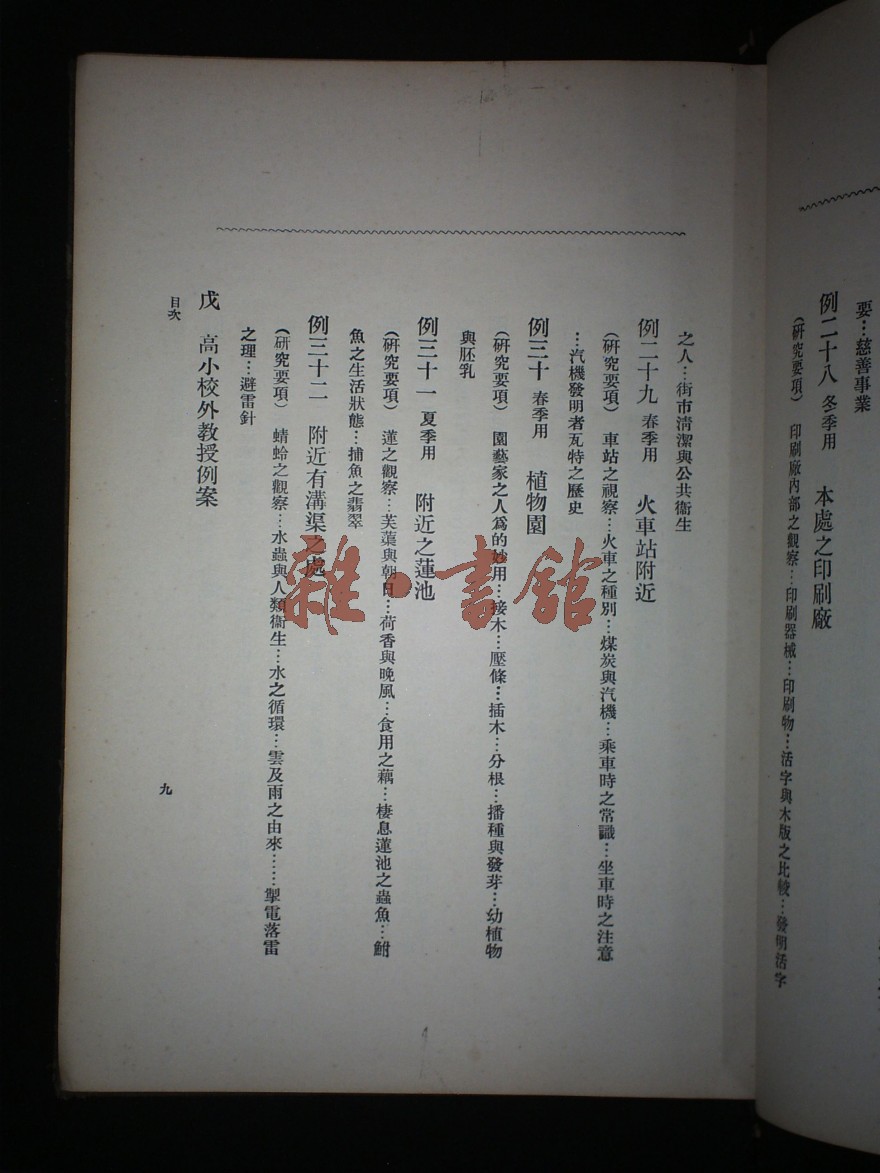 要…慈善事業
例二十八 冬季用 本處之印刷廠
(研究要項) 印刷廠內部之觀察…印刷器械…印刷物…活字與木版之比較…發明活字
之人…街市清潔與公共衞生
例二十九 春季用 火車站附近
(研究要項) 車站之視察…火車之種別…煤炭與汽機…乘車時之常識…坐車時之注意
…汽機發明者瓦特之歷史
例三十 春季用 植物園
(研究要項) 園藝家之人爲的妙用…接木…壓條…插木…分根…播種與發芽…幼植物
與胚乳
例三十一 夏季用 附近之蓮池
(研究要項) 蓮之觀察…芙蕖與朝日…荷香與晚風…食用之藕…棲息蓮池之蟲魚…鮒
魚之生活狀態…捕魚之翡翠
例三十二 附近有溝渠之處
(研究要項) 蜻蛉之觀察…水蟲與人類衞生…水之循環…雲及雨之由來……掣電落雷
之理…避雷針
戊 高小校外教授例案
目次
九
雜·書館